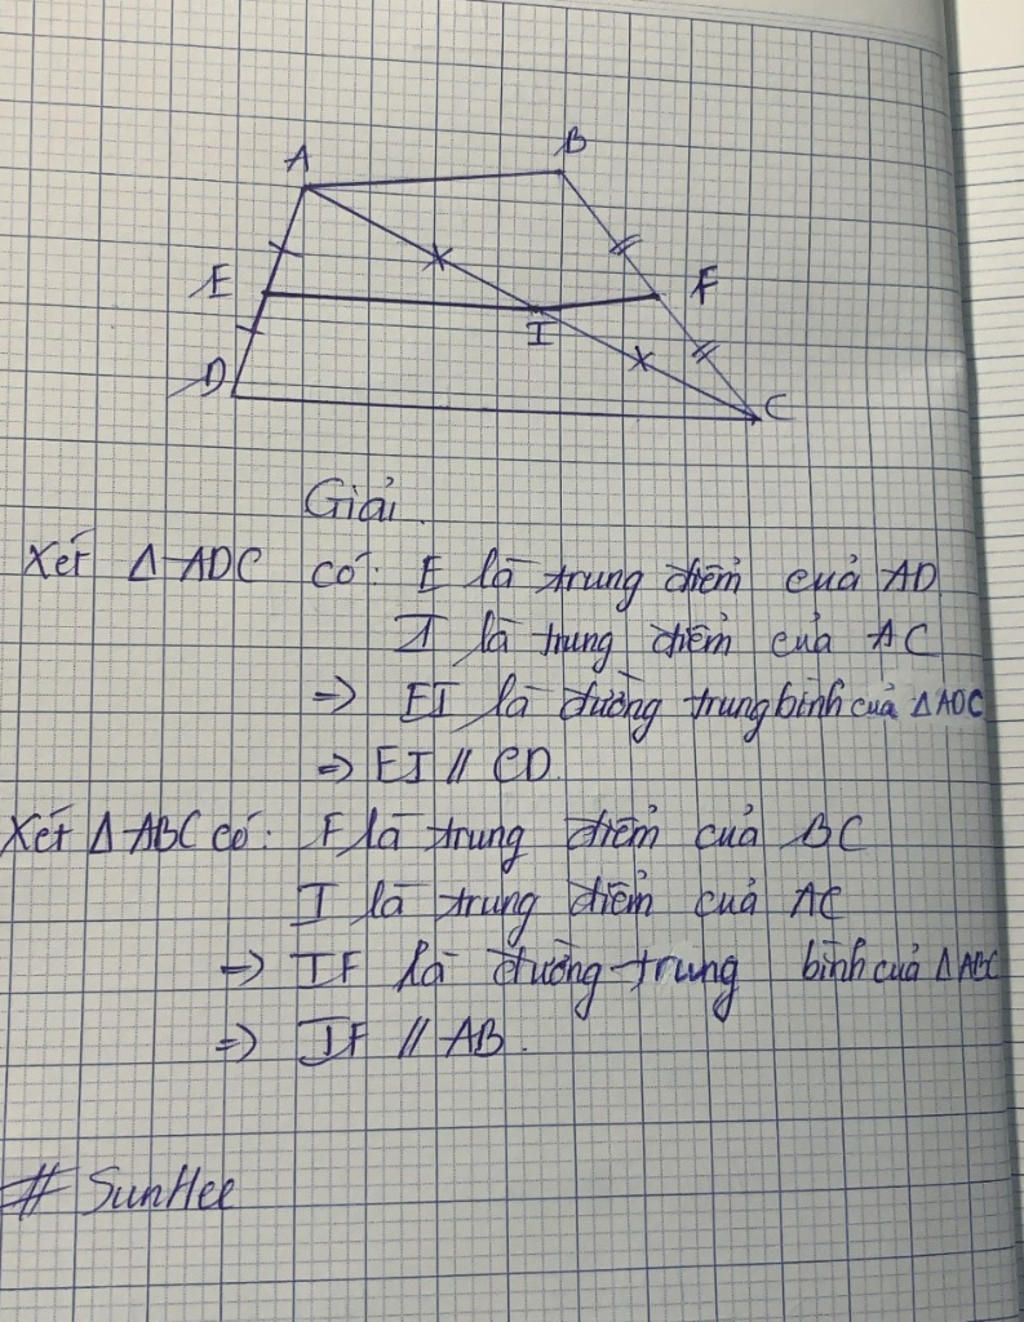 A
B
E
F
I
D
C
Giải.
Xét Δ ADC có: E là trung điểm của AD
I là trung điểm của AC
=> EI là đường trung bình của Δ ADC
=> EI // CD.
Xét Δ ABC có: F là trung điểm của BC
I là trung điểm của AC
=> IF là đường trung bình của Δ ABC
=> IF // AB.
# SunHee